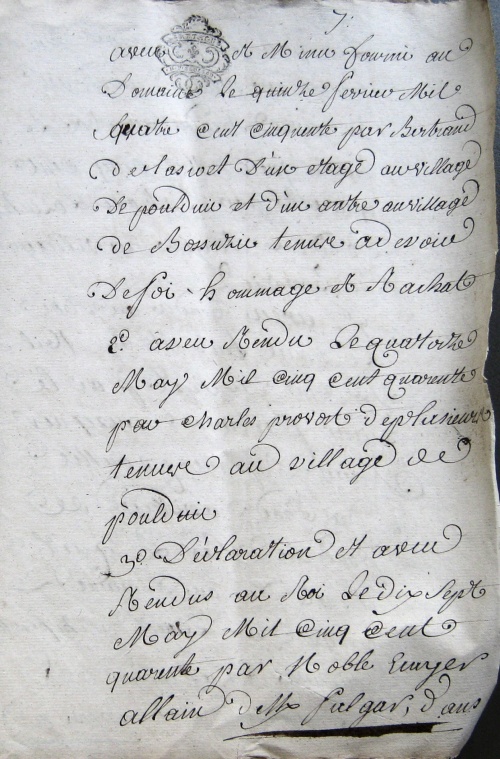 7.
aveu et Minu fourni au
Domaine le quinze fevrier Mil
quatre cent cinquente par Bertrand
d'un etage au village
De poulduic et d'un autre au village
de tenue a devoir
De foi hommage et Rachat
2.º aveu Rendu Le quatorze
May Mil cinq cent quarente
par Charles provost de plusieurs
tenues au village de
poulduic
3º Déclaration et aveu
Rendus au Roi Le dix sept
May Mil cinq cent
quarente par Noble Ecuyer
allain dans